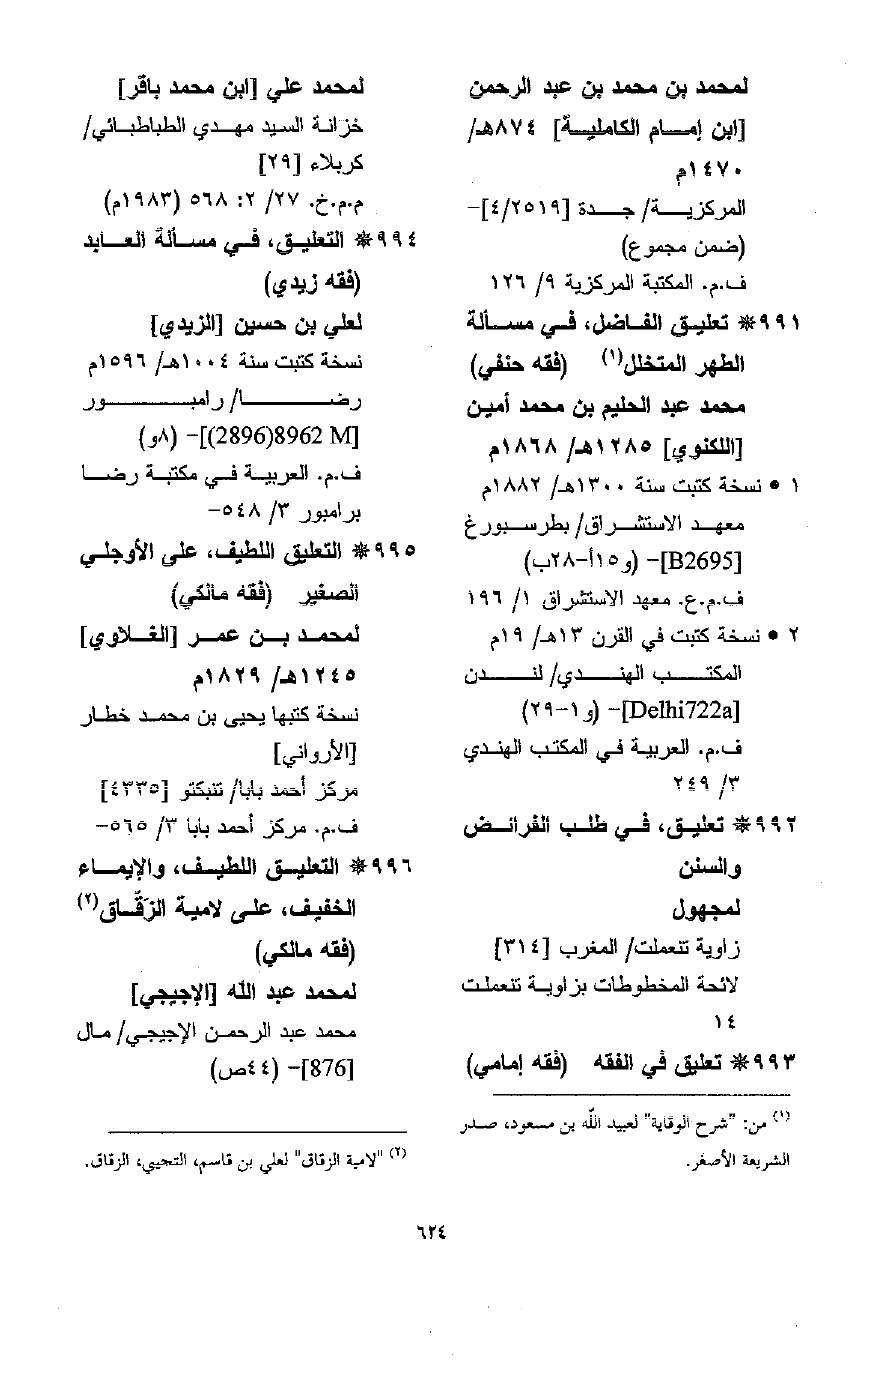 لمحمد بن محمد بن عبد الرحمن
[ابن إمام الكاملية] ٨٧٤هـ/
١٤٧٠م
المركزية/ جدة [٤/٢٥١٩]-
(ضمن مجموع)
ف.م. المكتبة المركزية ٩/ ١٢٦
٩٩١* تعليق الفاضل، في مسألة
الطهر المتخلل(١) (فقه حنفي)
محمد عبد الحليم بن محمد أمين
[اللكنوي] ١٢٨٥هـ/ ١٨٦٨م
١ • نسخة كتبت سنة ١٣٠٠هـ/ ١٨٨٢م
معهد الاستشراق/ بطرسبورغ
[B2695]- (و١٥أ-٢٨ب)
ف.م.ع. معهد الاستشراق ١/ ١٩٦
٢ • نسخة كتبت في القرن ١٣هـ/ ١٩م
المكتب الهندي/ لندن
[Delhi722a]- (و١-٢٩)
ف.م. العربية في المكتب الهندي
٣/ ٢٤٩
٩٩٢* تعليق، في طلب الفرائض
والسنن
لمجهول
زاوية تنعملت/ المغرب [٣١٤]
لائحة المخطوطات بزاوية تنعملت
١٤
٩٩٣* تعليق في الفقه (فقه إمامي)
(١) من: "شرح الوقاية" لعبيد الله بن مسعود، صدر
الشريعة الأصغر.
لمحمد علي [ابن محمد باقر]
خزانة السيد مهدي الطباطبائي/
كربلاء [٢٩]
م.م.خ. ٢٧/ ٢: ٥٦٨ (١٩٨٣م)
٩٩٤* التعليق، في مسألة العابد
(فقه زيدي)
لعلي بن حسين [الزيدي]
نسخة كتبت سنة ١٠٠٤هـ/ ١٥٩٦م
رضا/ رامبور
[M 8962(2896)]- (٨و)
ف.م. العربية في مكتبة رضا
برامبور ٣/ ٥٤٨-
٩٩٥* التعليق اللطيف، على الأوجلي
الصغير (فقه مالكي)
لمحمد بن عمر [الغلاوي]
١٢٤٥هـ/ ١٨٢٩م
نسخة كتبها يحيى بن محمد خطار
[الأرواني]
مركز أحمد بابا/ تنبكتو [٤٣٣٥]
ف.م. مركز أحمد بابا ٣/ ٥٦٥-
٩٩٦* التعليق اللطيف، والإيماء
الخفيف، على لامية الزَقَّاق(٢)
(فقه مالكي)
لمحمد عبد الله [الإجيجي]
محمد عبد الرحمن الإجيجي/ مال
[876]- (٤٤ص)
(٢) "لامية الزقاق" لعلي بن قاسم، التجيبي، الزقاق.
٦٢٤